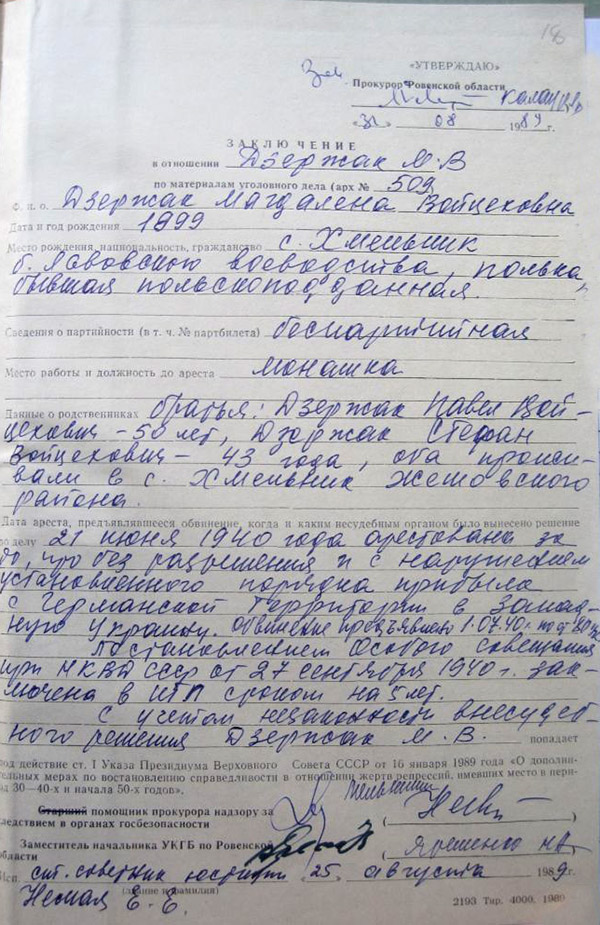 186
«УТВЕРЖДАЮ»
Зам. Прокурор Ровенской области
«31» 08 1989
ЗАКЛЮЧЕНИЕ
в отношении Дзержак М.В
по материалам уголовного дела (арх № 509
Ф. И. О. Дзержак Магдалена Войцеховна
Дата и год рождения 1899
Место рождения, национальность, гражданство с. Хмельник
б. Львовского воеводства, полька,
бывшая польскоподданная.
Сведения о партийности (в т. ч. № партбилета) беспартийная
Место работы и должность до ареста монашка
Данные о родственниках братья: Дзержак Павел Вой-
цехович - 50 лет, Дзержак Стефан
Войцехович - 43 года, оба прожи-
вали в с. Хмельник Жешовского
района.
Дата ареста, предъявлявшееся обвинение, когда и каким несудебным органом было вынесено решение
по делу 21 июня 1940 года арестована за
то, что без разрешения и с нарушением
установленного порядка прибыла
с Германской территории в Запад-
ную Украину. Обвинение предъявлено 1.07.40г. по ст. 80 УК
Постановлением Особого совещания
при НКВД СССР от 27 сентября 1940 г. зак-
лючена в ИТЛ сроком на 5 лет.
С учетом незаконности внесудеб-
ного решения Дзержак М.В. попадает
под действие ст. 1 Указа Президиума Верховного Совета СССР от 16 января 1989 года «О дополни-
тельных мерах по востановлению справедливости в отношении жертв репрессий, имевших место в пери-
од 30—40-х и начала 50-х годов».
Старший помощник прокурора надзору за
следствием в органах госбезопасности
Заместитель начальника УКГБ по Ровенской
области
Исп. советник юстиции «25» августа 1989г.
(звание и фамилия)
Е. Е.
2193 Тир. 4000. 1989